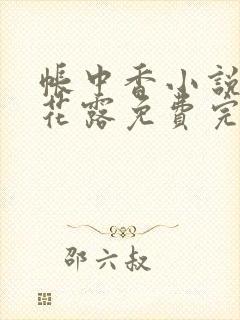 帳中香小說
花露免費完
邵六叔